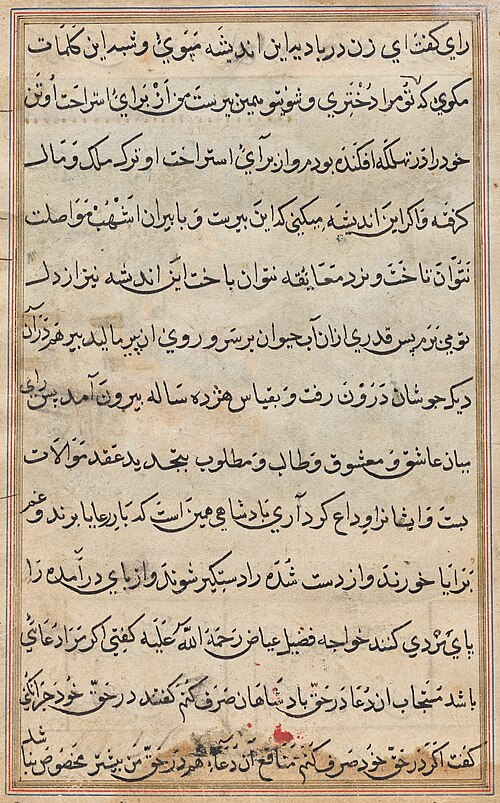 رای گفت ای زن در بادیه این اندیشه مپوی و شبه این کلمات
مکوی که تو مرا دختری و شوی تو همین پیرست من از برای استراحت او تن
خود را در تهلکه افکنده بودم و از برای استراحت او ترک ملک و مال
کرفته و اکر این اندیشه میکنی که این پیرست و با پیران اشهب مواصلت
نتوان تاخت و نرد معانقه نتوان باخت این اندیشه نیز از دل
تو می برم پس قدری از ان آب حیوان بر سر و روی ان پیر مالید پیر هم در آن
دیک جوشان درون رفت و بقیاس هژده ساله بیرون آمد پس رای
میان عاشق و معشوق و طالب و مطلوب بتجدید عقد موالات
بست و ایشانرا وداع کرد آری پادشاهی همین است که بار رعایا برند و غم
برایا خورند و از دست شده را دستکیر شوند و از پای درآمده را
پای مردی کنند خواجه فضیل عیاض رحمة الله علیه کفتی اکر مرا دعائی
باشد مستجاب ان دعا در حق پادشاهان صرف کنم کفتند در حق خود چرا نکنی
کفت اکر در حق خود صرف کنم منافع آن دعاء هم در حق من بیشتر مخصوص نباشد